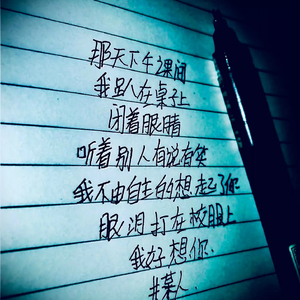 那天下午课间
我趴在桌子上
闭着眼睛
听着别人有说有笑
我不由自主的想起了你
眼泪打在校服上
我好想你.
#某人.